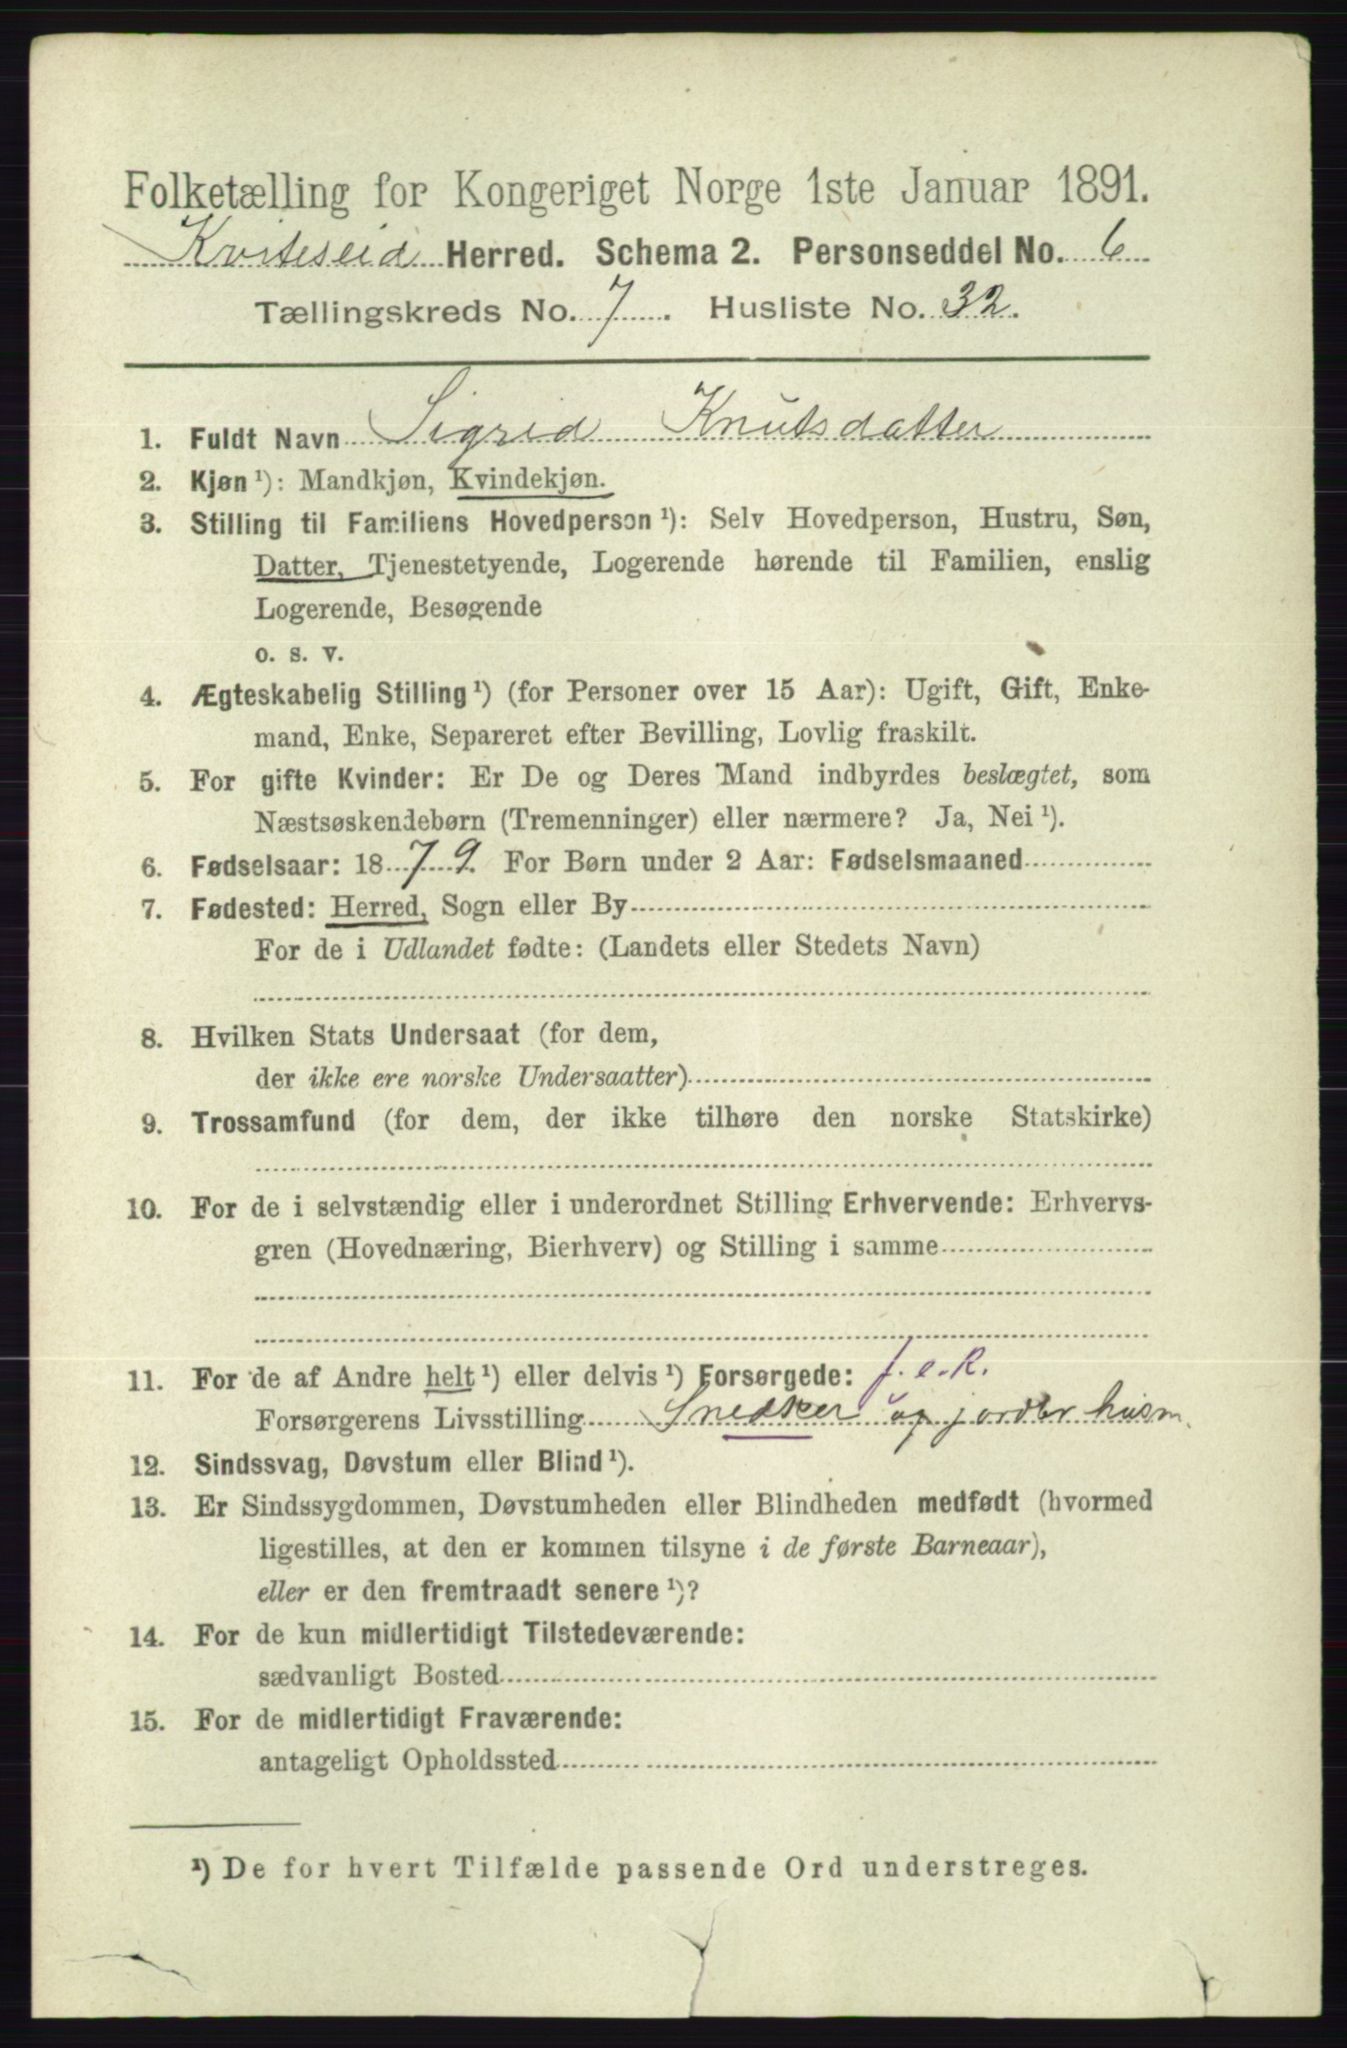 Folketælling for Kongeriget Norge 1ste Januar 1891.
Kviteseid Herred. Schema 2. Personseddel No. 6
Tællingskreds No. 7. Husliste No. 32.
1. Fuldt Navn Sigrid Knutsdatter
2. Kjøn ¹): Mandkjøn, Kvindekjøn.
3. Stilling til Familiens Hovedperson ¹): Selv Hovedperson, Hustru, Søn,
Datter, Tjenestetyende, Logerende hørende til Familien, enslig
Logerende, Besøgende
o. s. v.
4. Ægteskabelig Stilling ¹) (for Personer over 15 Aar): Ugift, Gift, Enke-
mand, Enke, Separeret efter Bevilling, Lovlig fraskilt.
5. For gifte Kvinder: Er De og Deres Mand indbyrdes beslægtet, som
Næstsøskendebørn (Tremenninger) eller nærmere? Ja, Nei ¹).
6. Fødselsaar: 1879. For Børn under 2 Aar: Fødselsmaaned
7. Fødested: Herred, Sogn eller By
For de i Udlandet fødte: (Landets eller Stedets Navn)
8. Hvilken Stats Undersaat (for dem,
der ikke ere norske Undersaatter)
9. Trossamfund (for dem, der ikke tilhøre den norske Statskirke)
10. For de i selvstændig eller i underordnet Stilling Erhvervende: Erhvervs-
gren (Hovednæring, Bierhverv) og Stilling i samme
11. For de af Andre helt ¹) eller delvis ¹) Forsørgede: f.e.k.
Forsørgerens Livsstilling Snedker og jordbr husm.
12. Sindssvag, Døvstum eller Blind ¹).
13. Er Sindssygdommen, Døvstumheden eller Blindheden medfødt (hvormed
ligestilles, at den er kommen tilsyne i de første Barneaar),
eller er den fremtraadt senere ¹)?
14. For de kun midlertidigt Tilstedeværende:
sædvanligt Bosted
15. For de midlertidigt Fraværende:
antageligt Opholdssted
¹) De for hvert Tilfælde passende Ord understreges.